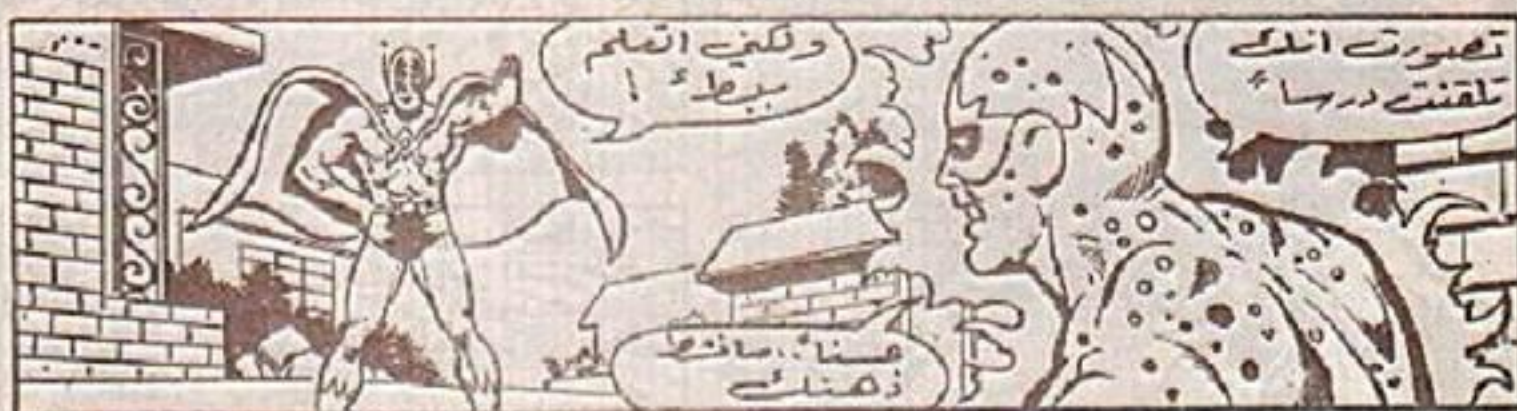 تصورت انك
تلقنت درساً
ولكني اتعلم
ببطء !
حسناً .. سأنشط
ذهنك